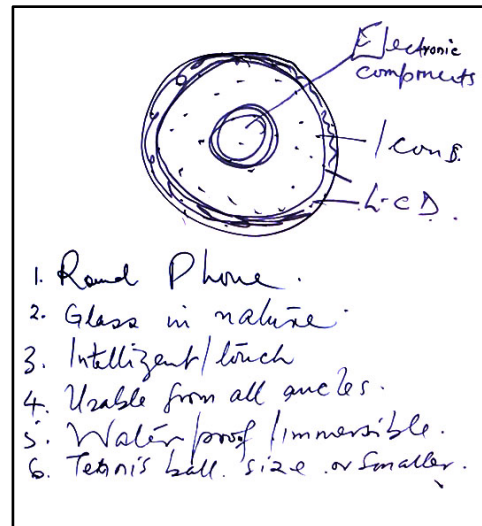 Electronic
components
Icons.
L-CD.
1. Round Phone.
2. Glass in nature.
3. Intelligent/touch
4. Usable from all angles.
5. Water/proof/immersible.
6. Tennis ball size or smaller.